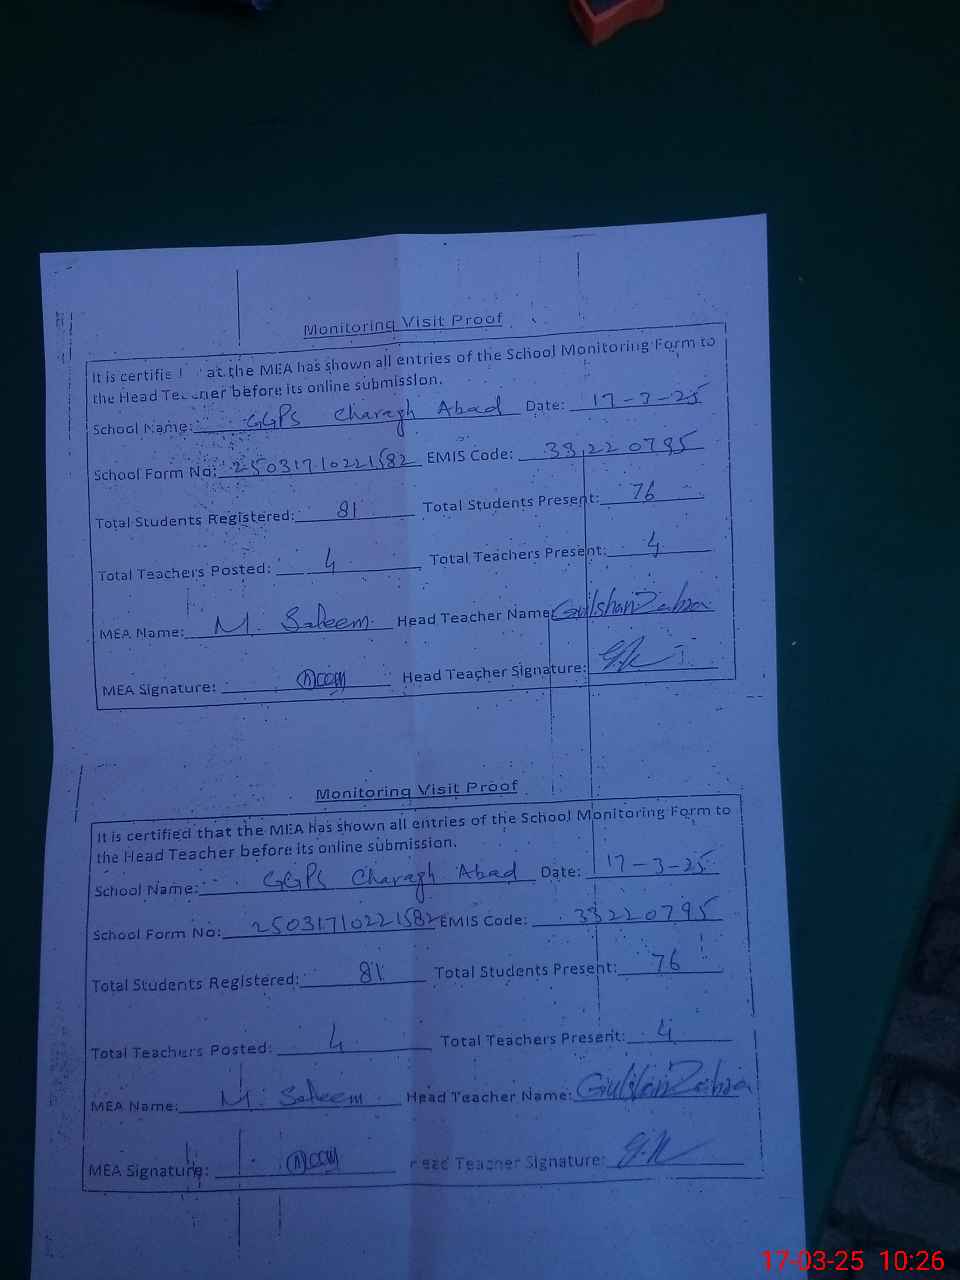 Monitoring Visit Proof
It is certifie at the MEA has shown all entries of the School Monitoring Form to
the Head Teacher before its online submission.
School Name: GGPS Charagh Abad Date: 17-3-25
School Form No: 25031710221582 EMIS Code: 33220795
Total Students Registered: 81 Total Students Present: 76
Total Teachers Posted: 4 Total Teachers Present: 4
MEA Name: M. Saleem. Head Teacher Name: Gulshan Zahra
MEA Signature: Head Teacher Signature:
Monitoring Visit Proof
It is certified that the MEA has shown all entries of the School Monitoring Form to
the Head Teacher before its online submission.
School Name: GGPS Charagh Abad Date: 17-3-25
School Form No: 25031710221582 EMIS Code: 33220795
Total Students Registered: 81 Total Students Present: 76
Total Teachers Posted: 4 Total Teachers Present: 4
MEA Name: M. Saleem Head Teacher Name: Gulshan Zahra
MEA Signature: Head Teacher Signature:
17-03-25 10:26